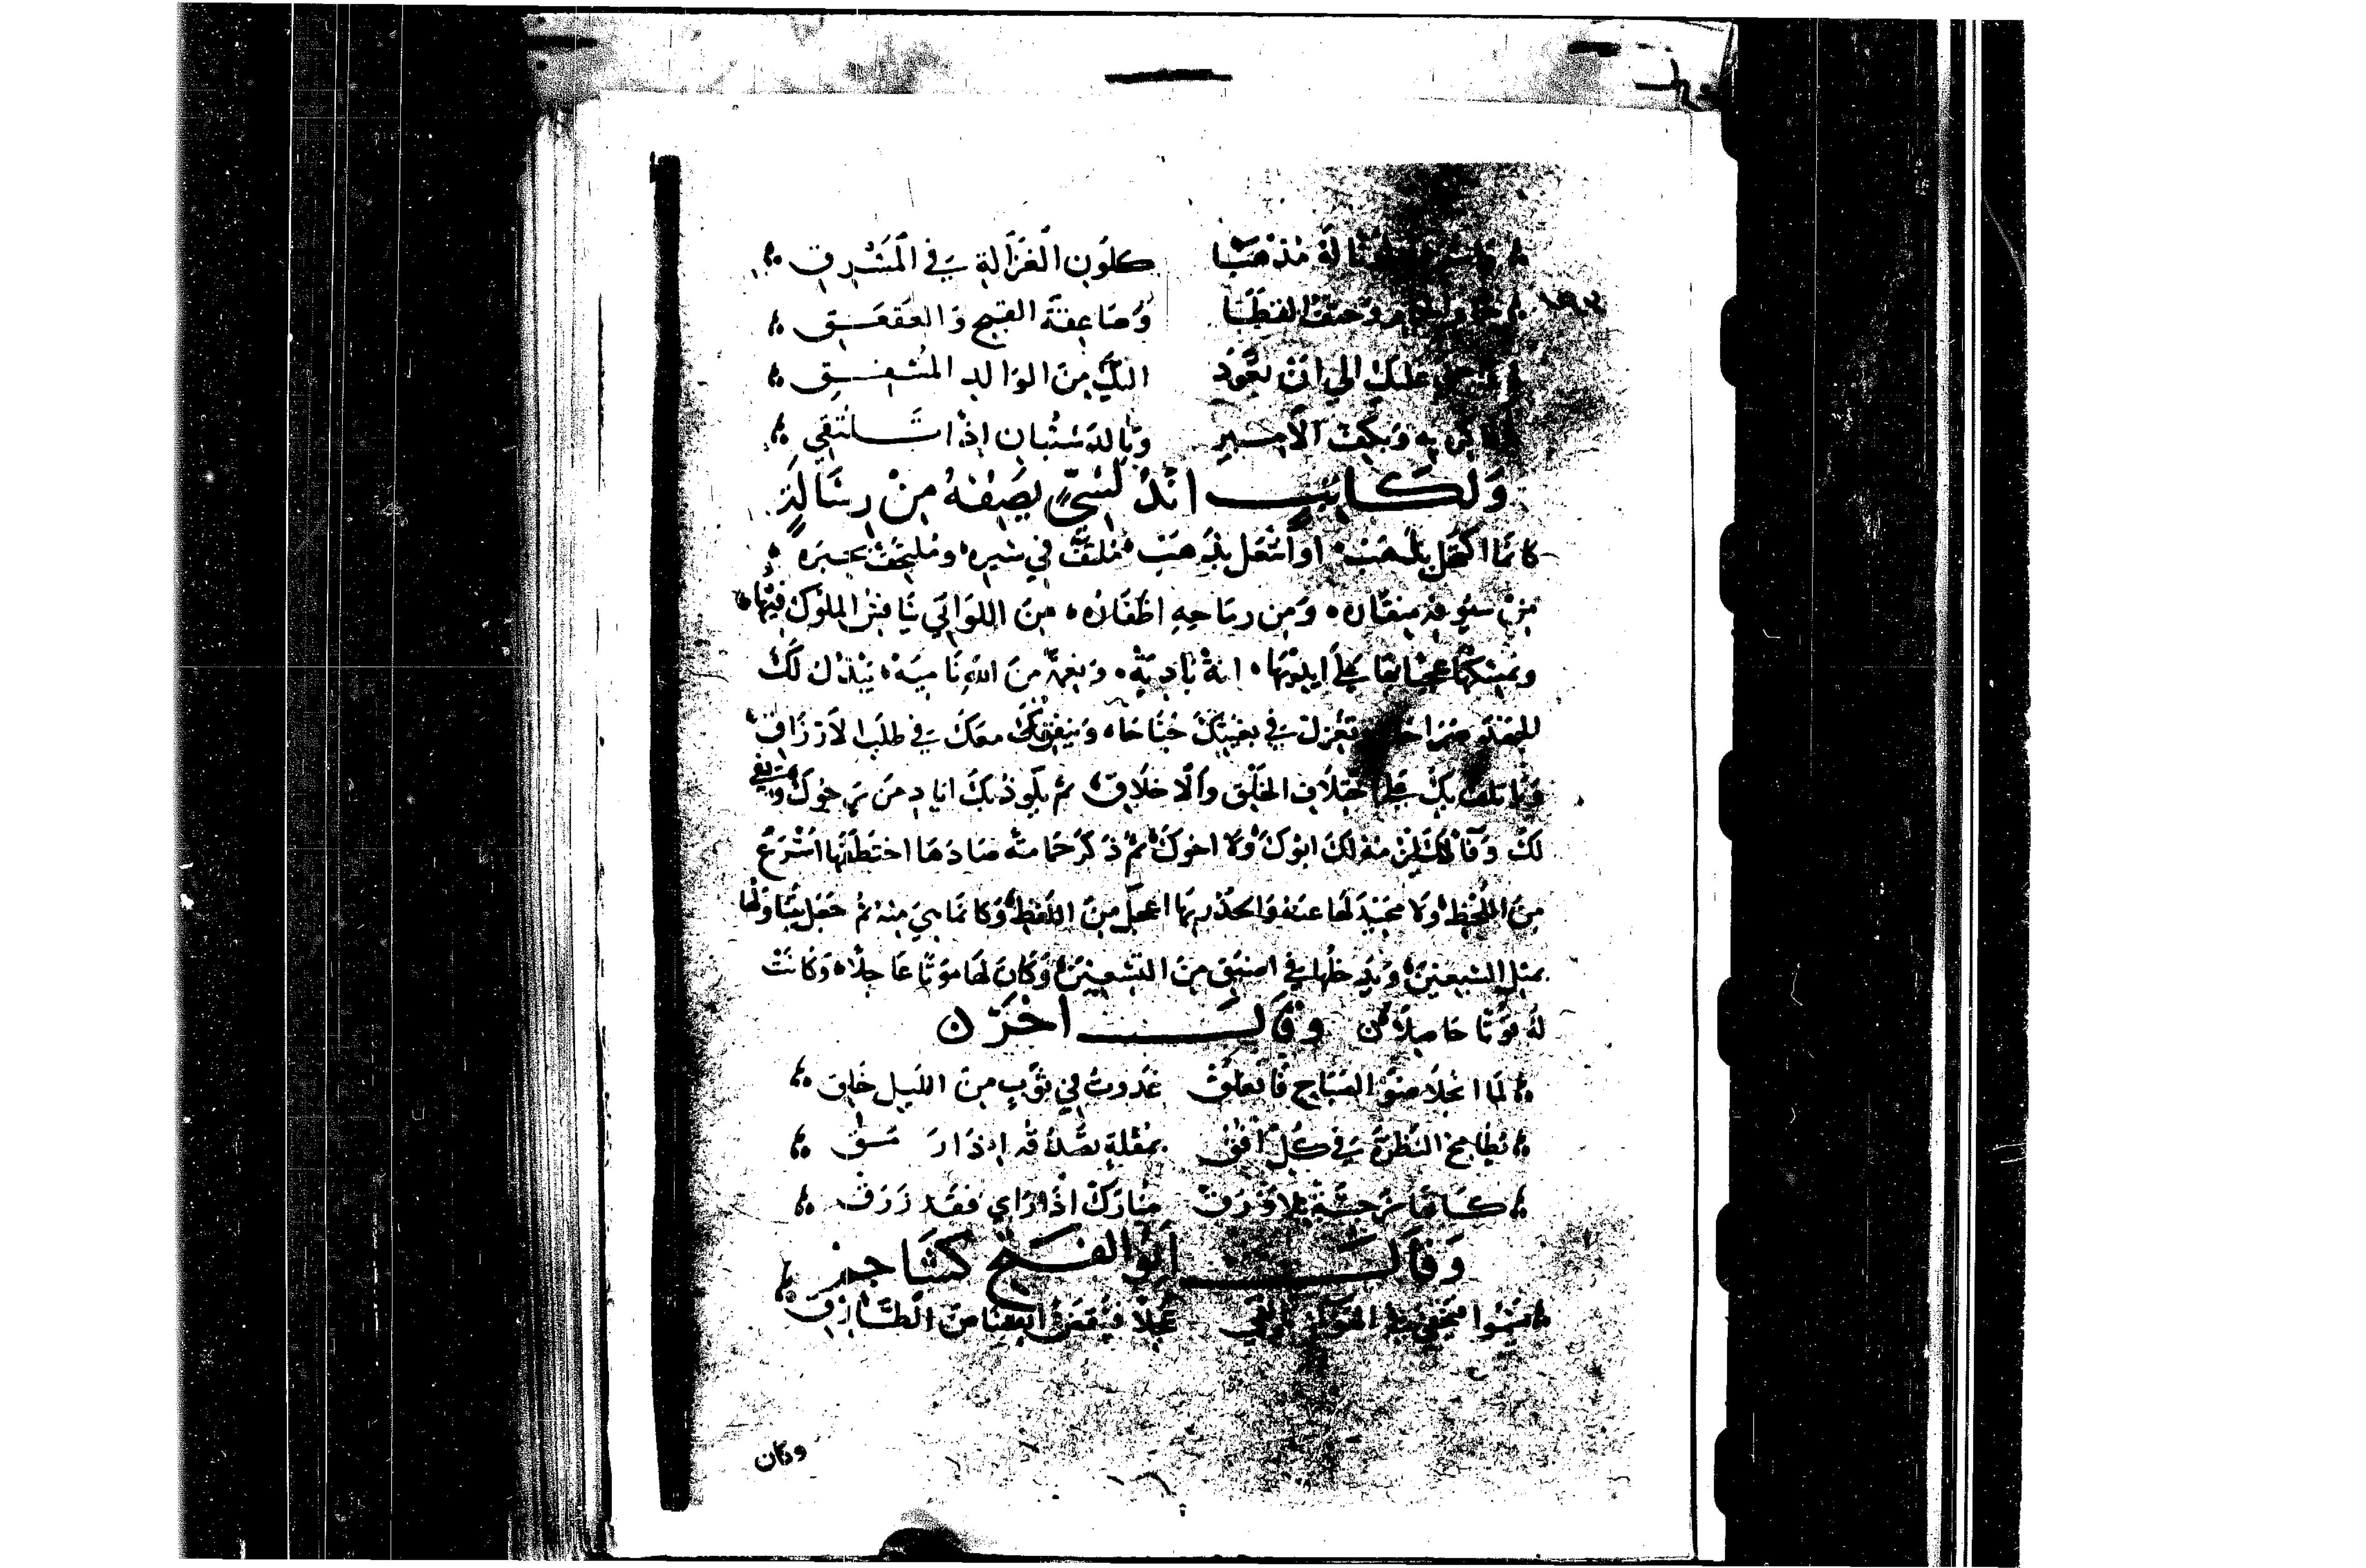 لونا له مذهبا كلون الغزالة في المشرق
حمام الحمام وحتف القطا وصاعقة القبج والعقعق
عليك الي ان تعود اليك من الوالد المشفق
به وبكف الامير وبالدستبان اذا تلتقي
ولكاتب اندلسيّ يصفه من رسالة
كانما اكتحل بلهب او انتعل بذهب ملتف في سبره وملتحف بحبره
من سيوفه منقاره ومن رماحه اظفاره من اللواتي تنافس الملوك فيها
وتمسكها عجبا بها علي ايديها اية بادية ونعمة من الله نامية تبذل لك
الجهد صراحا وتعيرك في بغيتك جناحا وتتفق معك في طلب الارزاق
وتاتلف بك علي اختلاف الخلق والاخلاق ثم تلوذ بك لياذ من يرجوك وتفي
لك وفاء لم يف مثله لك ابوك ولا اخوك ثم ذكر حمامة صادها اختطفها اسرع
من اللحظ ولا محيد لها عنه وانحدر بها اعجل من اللفظ وكانما هي منه ثم جعل يتناولها
بمثل السبعين ويدخلها في اضيق من التسعين وكان لها موتا عاجلا وكانت
له قوتا حاصلا وقال اخر
لما انجلا ضوّ الصباح فانفلق غدوت في ثوب من الليل خلق
بطامح النظرة في كل افق بمقلة تصدقه اذا رمق
كانها نرجسة بلا ورق مبارك اذا راي فقد رزق
وقال ابو الفتح كشاجم
من الطارق
وكان